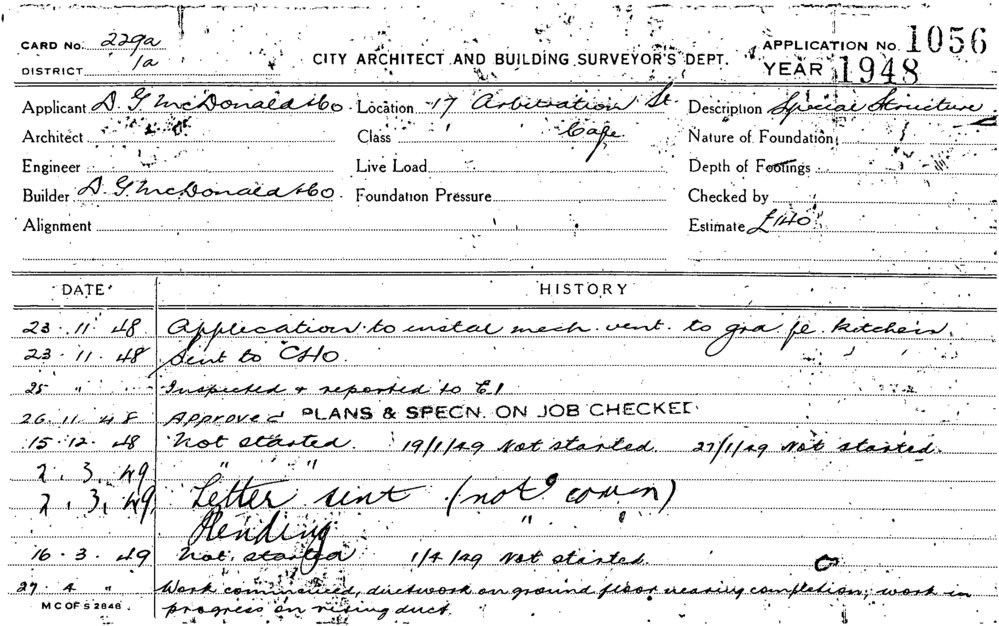 CARD No. 229a
DISTRICT 1a
CITY ARCHITECT AND BUILDING SURVEYOR'S DEPT.
APPLICATION No. 1056
YEAR 1948
Applicant D. G. McDonald & Co. Location 17 Arbitration St. Description Special Structure
Architect Class Cafe Nature of Foundation
Engineer Live Load Depth of Footings
Builder D. G. McDonald & Co. Foundation Pressure Checked by
Alignment Estimate £140
DATE HISTORY
23.11.48 Application to instal mech. vent. to gra fl. kitchen.
23.11.48 Sent to CHO.
25 " Inspected & reported to E.I
26.11.48 Approved PLANS & SPECN. ON JOB CHECKED
15.12.48 Not started. 19/1/49 Not started 27/1/49 Not started.
2.3.49 " "
2.3.49 Letter sent (not comm)
Pending " "
16.3.49 Not started 1/4/49 Not started.
27.4 " Work commenced, ductwork on ground floor nearing completion; work in
progress on rising duct
M C OF S 2848.